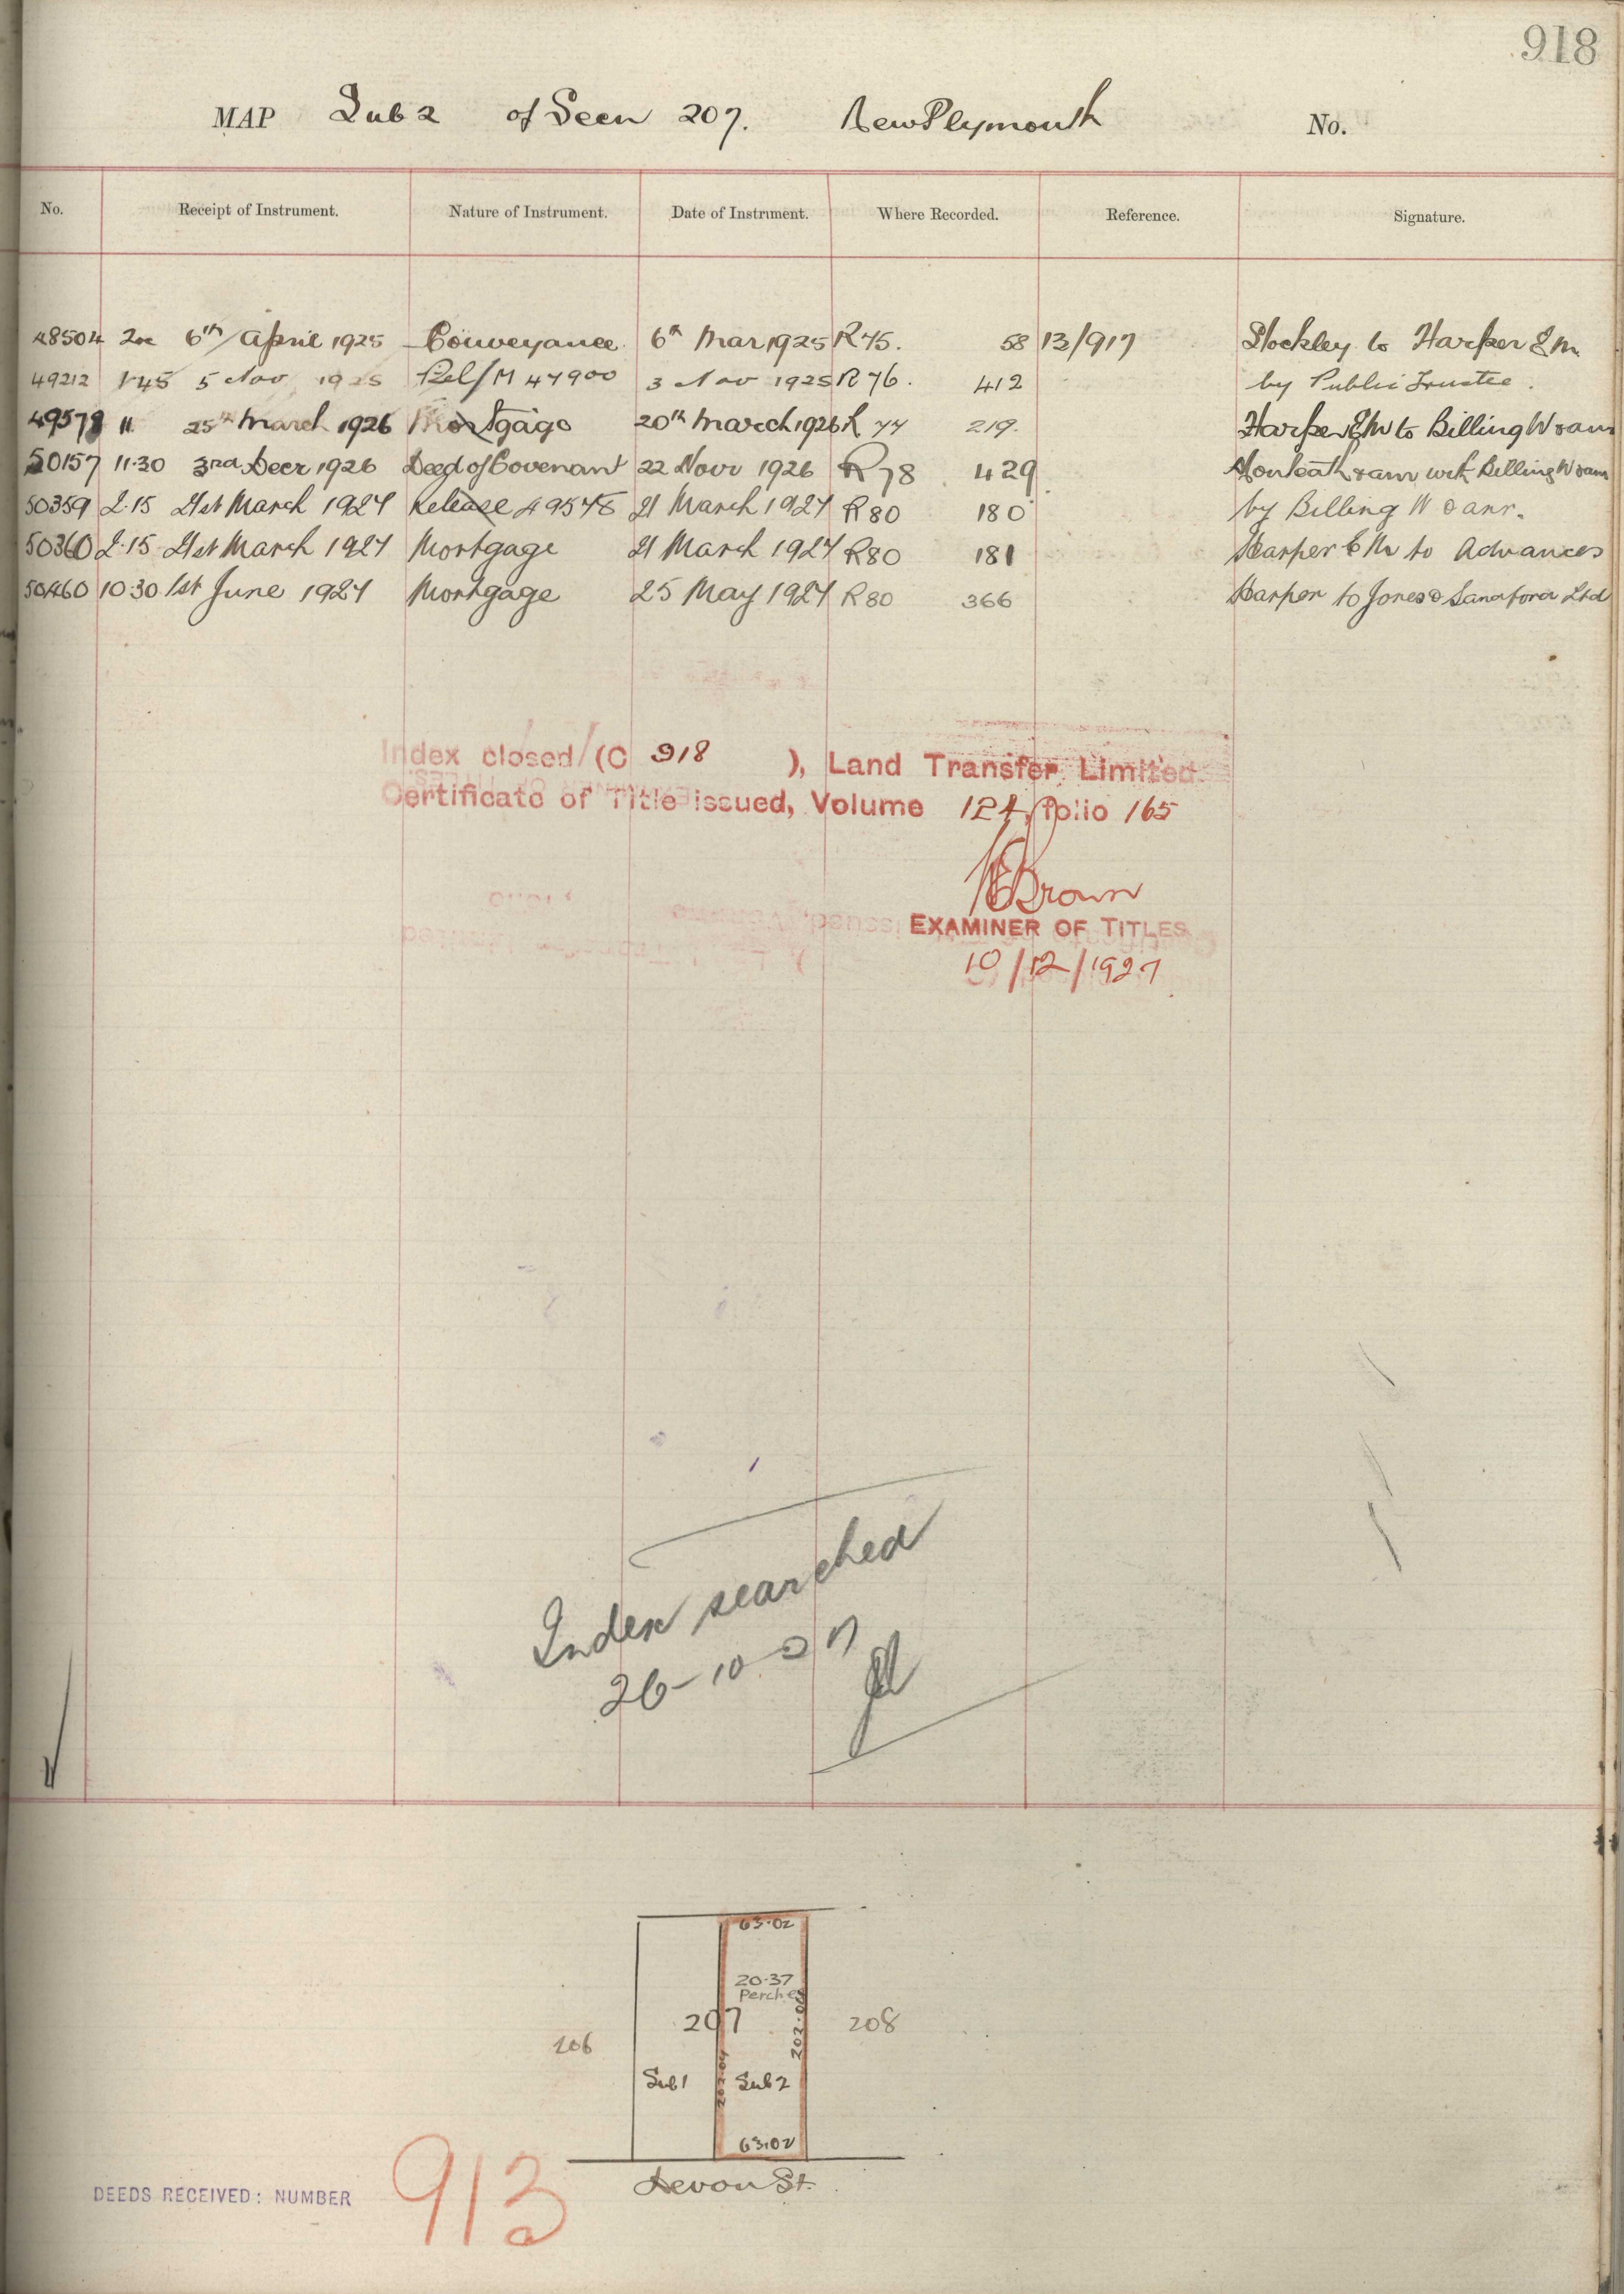 918
MAP Sub 2 of Secn 207. New Plymouth No.
No. Receipt of Instrument. Nature of Instrument. Date of Instrument. Where Recorded. Reference. Signature.
48504 6th April 1925 Conveyance 6th Mar 1925 R 75. 58 13/917 Stockley to Harper E M.
49212 1·45 5 Nov 1925 Rel/M 47900 3 Nov 1925 R 76. 412 by Public Trustee.
49578 11 25th March 1926 Mortgage 20th March 1926 R 77 219. Harper E M to Billing W & anr
50157 11·30 3rd Decr 1926 Deed of Covenant 22 Novr 1926 R 78 429 Monteath & anr with Billing W & anr
50359 2·15 21st March 1927 Release 49578 21 March 1927 R 80 180 by Billing W & anr.
50360 2·15 21st March 1927 Mortgage 21 March 1927 R 80 181 Harper E M to Advances
50460 10·30 1st June 1927 Mortgage 25 May 1927 R 80 366 Harper to Jones & Sandford Ltd
Index closed (C 918 ), Land Transfer Limited
Certificate of Title issued, Volume 124, folio 165
Brown
EXAMINER OF TITLES
10/12/1927
Index searched
26-10-27
63·02
20·37
Perches
207
206
208
202·04
202·04
Sub 1
Sub 2
63·02
Devon St.
DEEDS RECEIVED: NUMBER 913